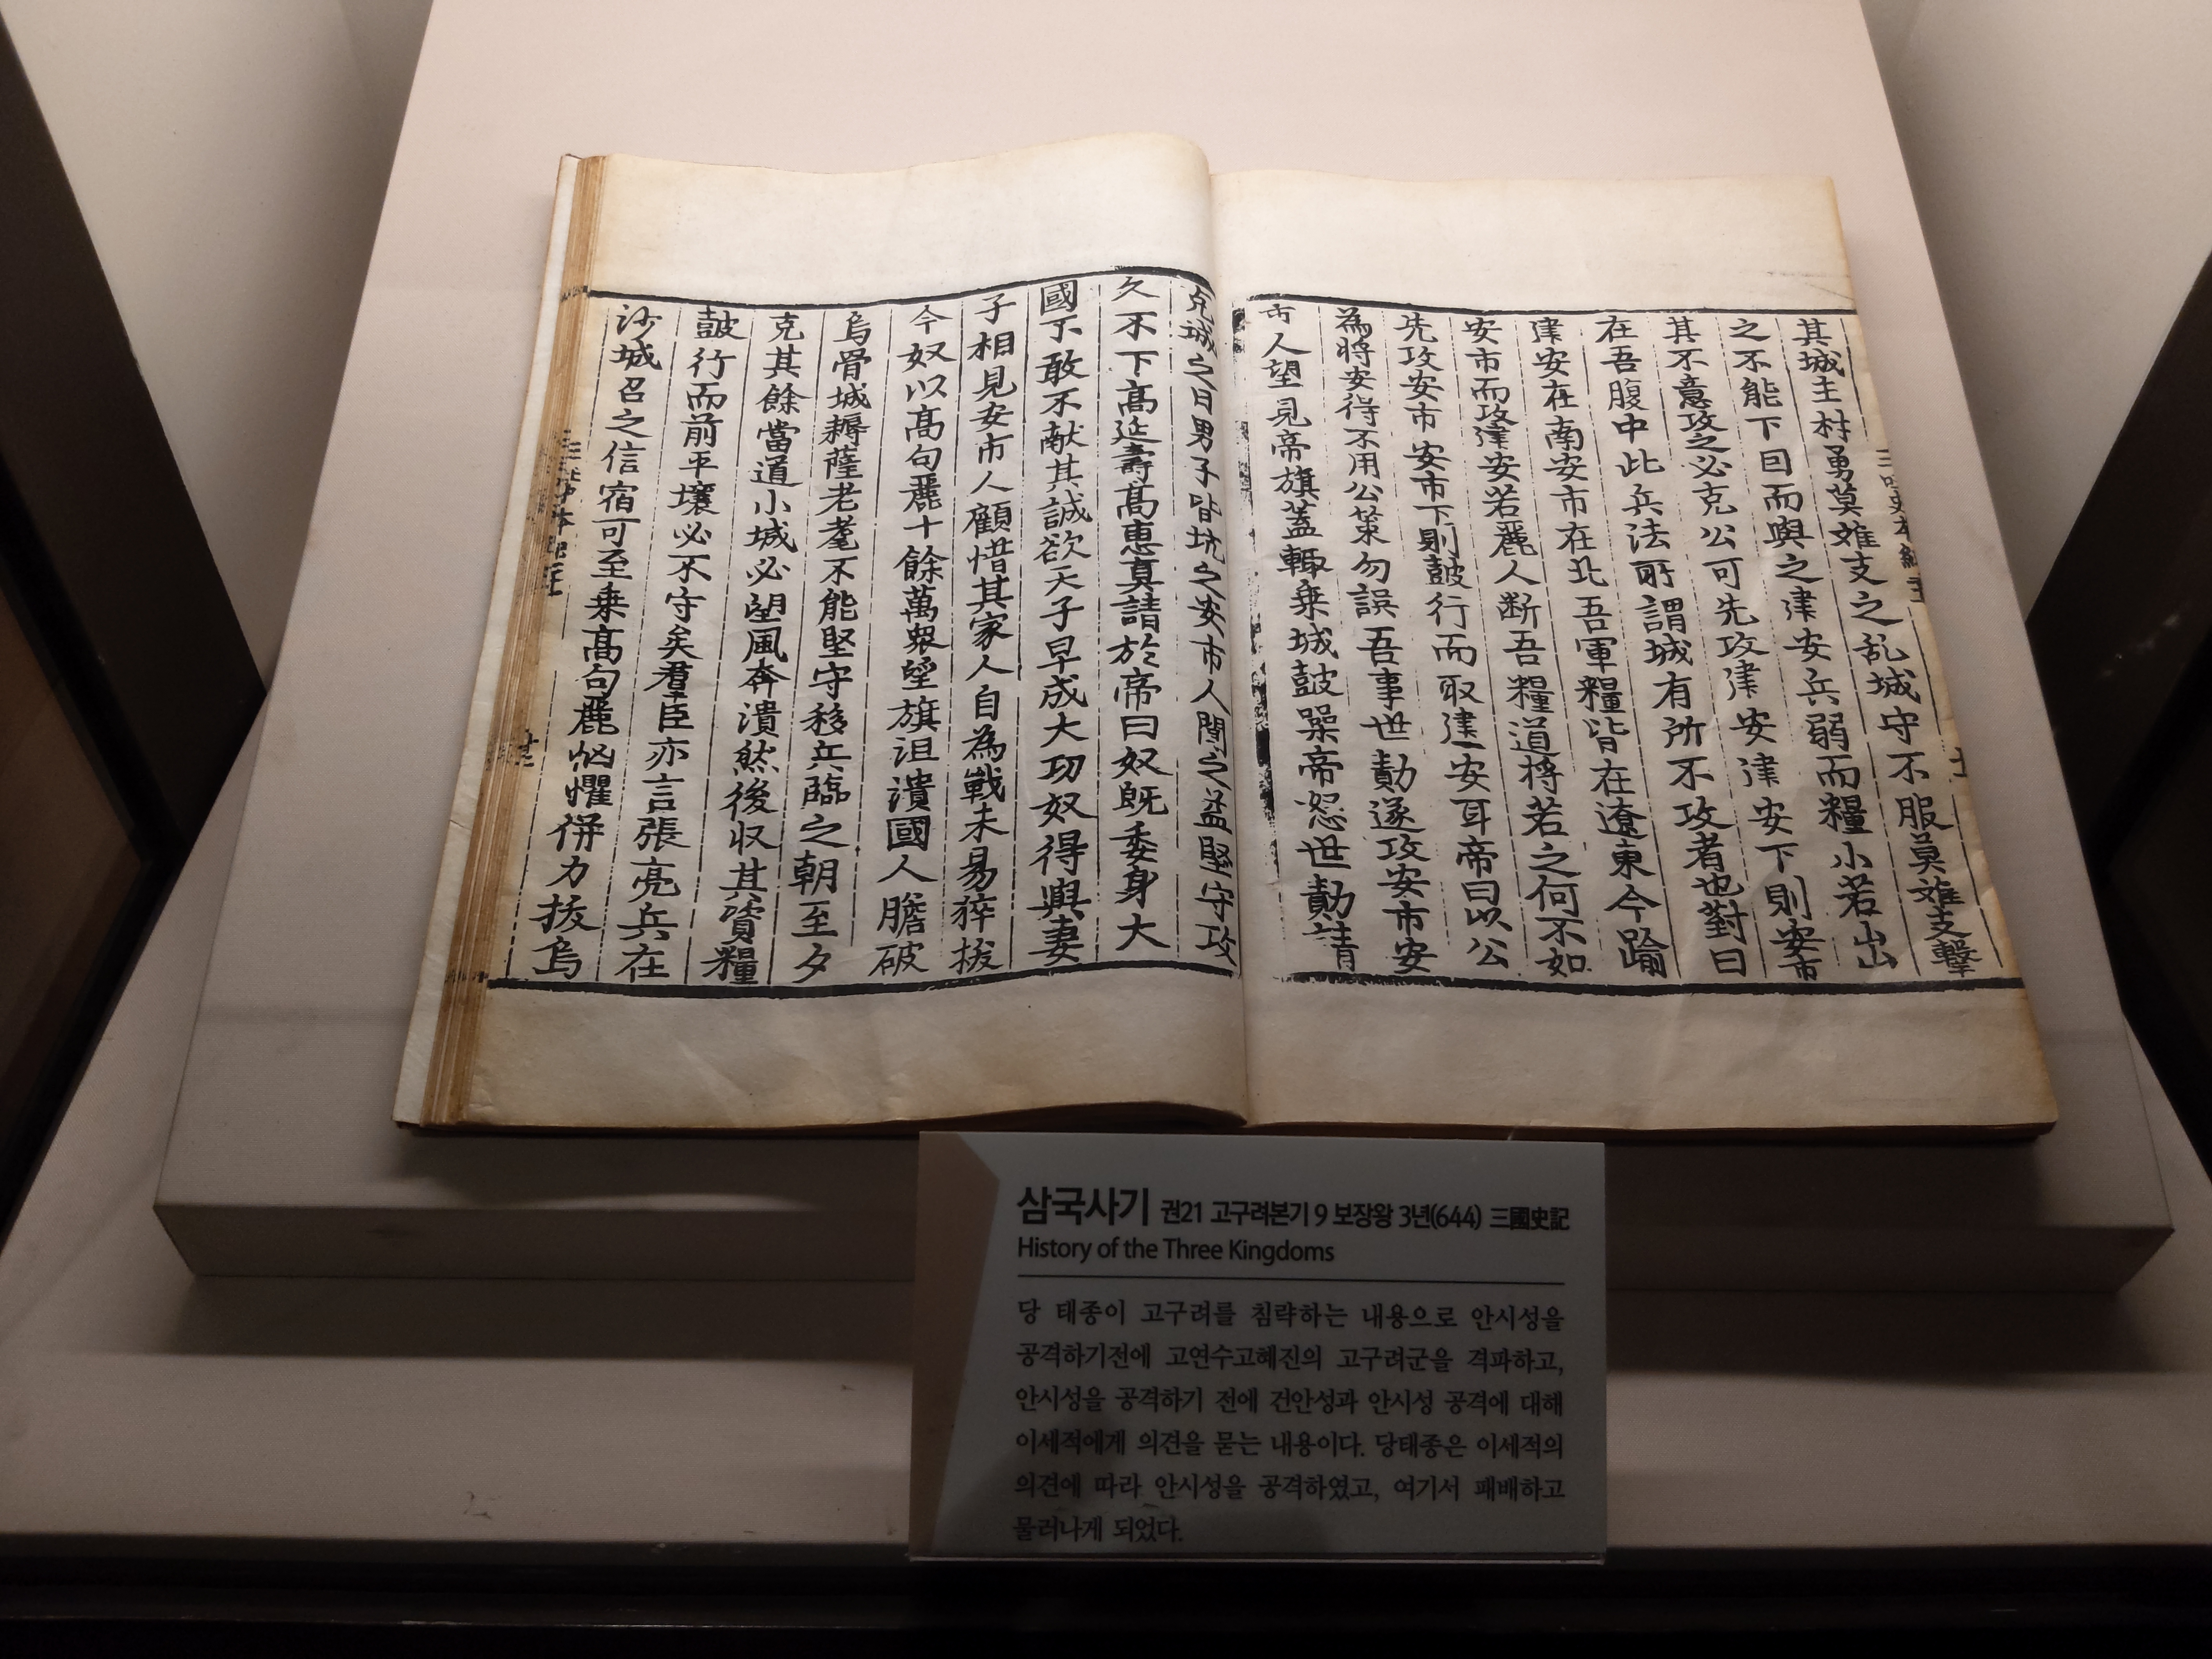 其城主材勇莫離支之乱城守不服莫離支擊
之不能下因而與之建安兵弱而糧小若出
其不意攻之必克公可先攻建安建安下則安市
在吾腹中此兵法所謂城有所不攻者也對曰
建安在南安市在北吾軍糧皆在遼東今踰
安市而攻建安若麗人断吾糧道將若之何不如
先攻安市安市下則鼓行而取建安耳帝曰以公
為將安得不用公策勿誤吾事世勣遂攻安市安
市人望見帝旗蓋輒乗城鼓噪帝怒世勣請
克城之日男子皆坑之安市人聞之益堅守攻
久不下高延壽高惠真請於帝曰奴旣委身大
國不敢不献其誠欲天子早成大功奴得與妻
子相見安市人顧惜其家人自為戰未易猝拔
今奴以高句麗十餘萬衆望旗沮潰國人膽破
烏骨城耨薩老耄不能堅守移兵臨之朝至夕
克其餘當道小城必望風奔潰然後収其資糧
鼓行而前平壤必不守矣羣臣亦言張亮兵在
沙城召之信宿可至乗高句麗恟懼併力拔烏
삼국사기 권21 고구려본기 9 보장왕 3년(644) 三國史記
History of the Three Kingdoms
당 태종이 고구려를 침략하는 내용으로 안시성을
공격하기전에 고연수고혜진의 고구려군을 격파하고,
안시성을 공격하기 전에 건안성과 안시성 공격에 대해
이세적에게 의견을 묻는 내용이다. 당태종은 이세적의
의견에 따라 안시성을 공격하였고, 여기서 패배하고
물러나게 되었다.